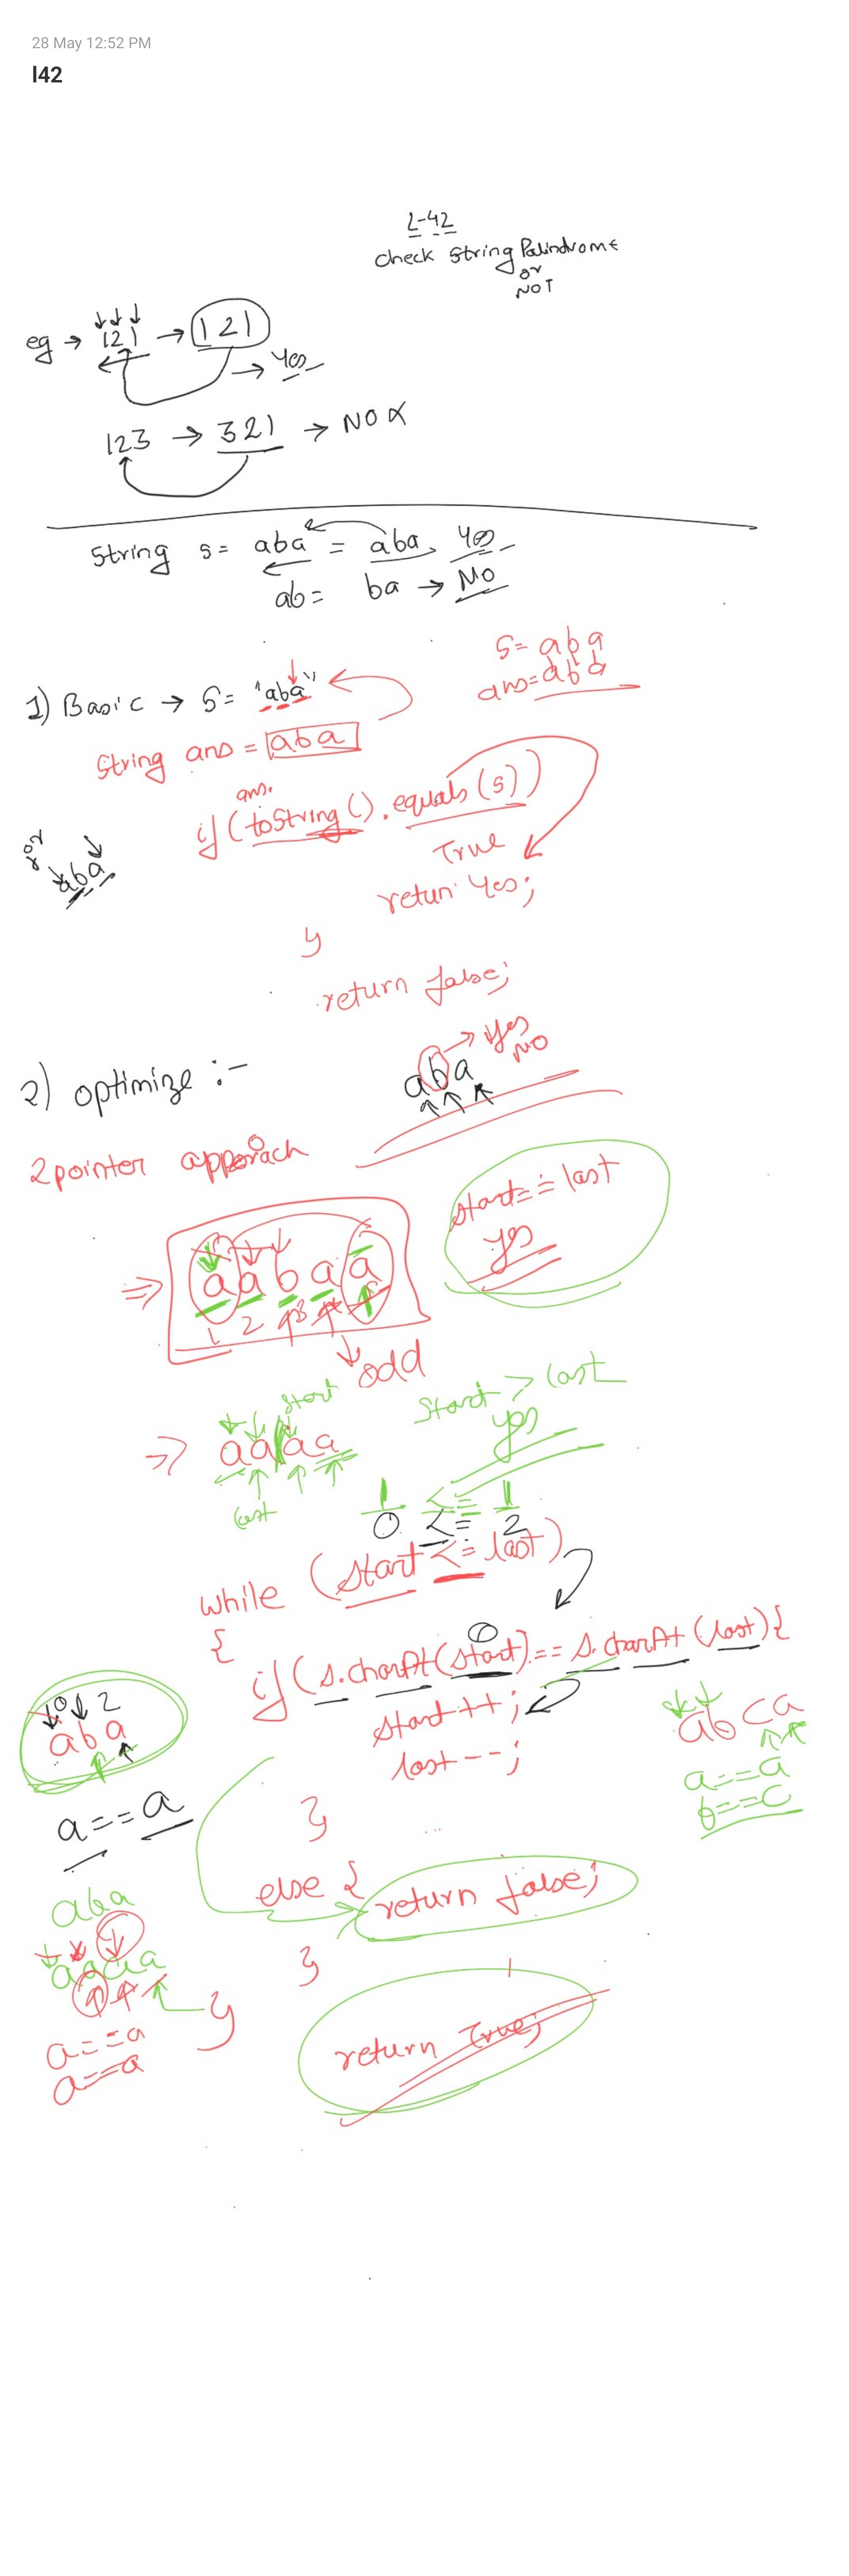 28 May 12:52 PM
l42
L-42
check String Palindrome
or
NOT
eg → 121 → 121
→ Yes
123 → 321 → NO X
String s = aba = aba, Yes
ab = ba → NO
S = aba
ans = aba
1) Basic → S = "aba"
String ans = aba
ans.
if (toString().equals(s))
or
aba
True
retun Yes;
}
return false;
2) optimize :-
aba → Yes
NO
2 pointer apporach
start == last
yes
⇒ a a b a a
1 2 3 4
↓ odd
start
Start > last
yes
⇒ a a a a
last
1 <= 1
0 <= 2
while (start <= last)
{
0
if (s.charAt(start) == s.charAt(last) {
start++;
last--;
0 1 2
aba
a == a
abca
a==a
b==c
}
else { return false;
}
aba
aaaa
a==a
a==a
}
return True;